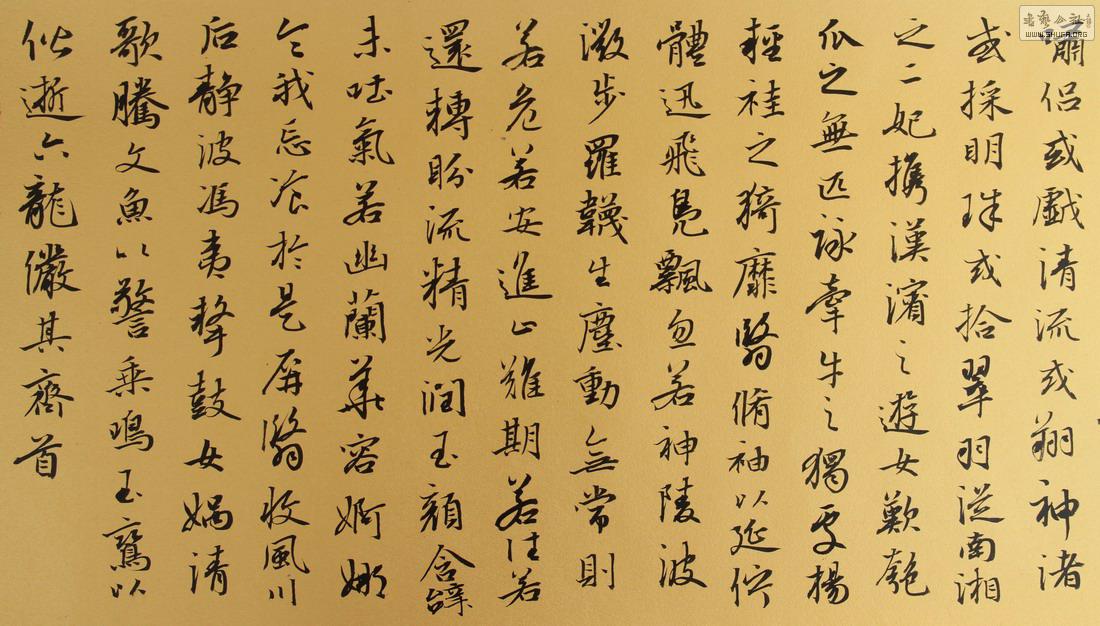 嘯侶或戲清流或翔神渚
或採明珠或拾翠羽從南湘
之二妃攜漢濱之遊女歎匏
瓜之無匹詠牽牛之獨處揚
輕袿之猗靡翳脩袖以延佇
體迅飛鳧飄忽若神陵波
微步羅韈生塵動無常則
若危若安進止難期若往若
還轉盼流精光潤玉顏含辭
未吐氣若幽蘭華容婀娜
令我忘飡於是屏翳收風川
后靜波馮夷擊鼓女媧清
歌騰文魚以警乘鳴玉鸞以
偕逝六龍儼其齊首
書藝公社
WWW.SHUFA.ORG